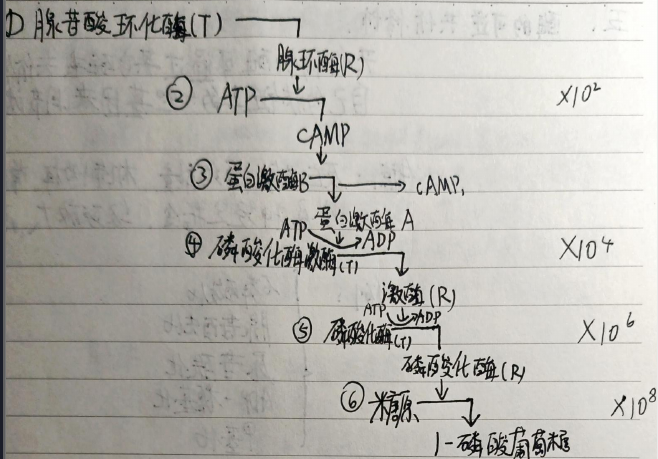 ① 腺苷酸环化酶(T)
腺环酶(R)
② ATP ×10²
cAMP
③ 蛋白激酶B cAMP,
蛋白激酶A
ATP ADP
④ 磷酸化酶激酶(T) ×10⁴
激酶(R)
ATP ADP
⑤ 磷酸化酶(T) ×10⁶
磷酸化酶(R)
⑥ 糖原 ×10⁸
1-磷酸葡萄糖